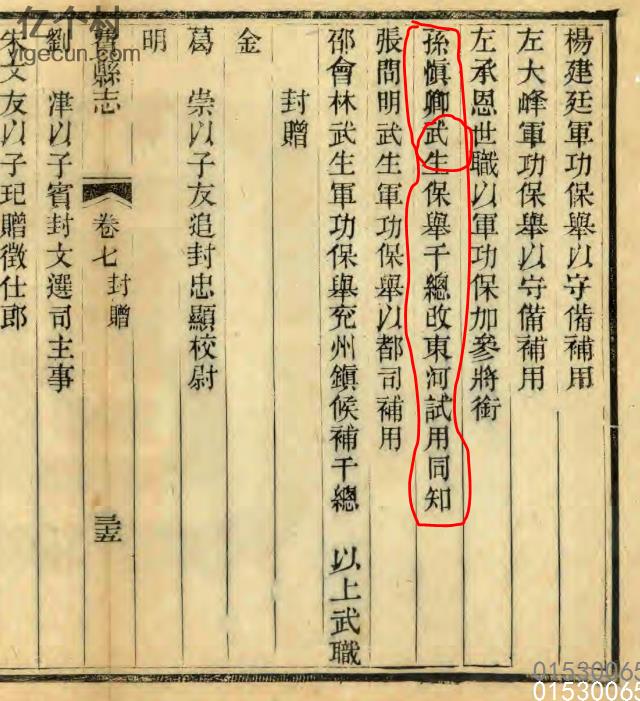 楊建廷軍功保舉以守備補用
左大峰軍功保舉以守備補用
左承恩世職以軍功保加參將銜
孫愼卿武生保舉千總改東河試用同知
張問明武生軍功保舉以都司補用
邵會林武生軍功保舉兗州鎮候補千總 以上武職
封贈
金
葛 崇以子友追封忠顯校尉
明
縣志 卷七 封贈 三五
劉 津以子賓封文選司主事
宋文友以子玘贈徵仕郎
亿个村
yigecun.com
01530065
01530065